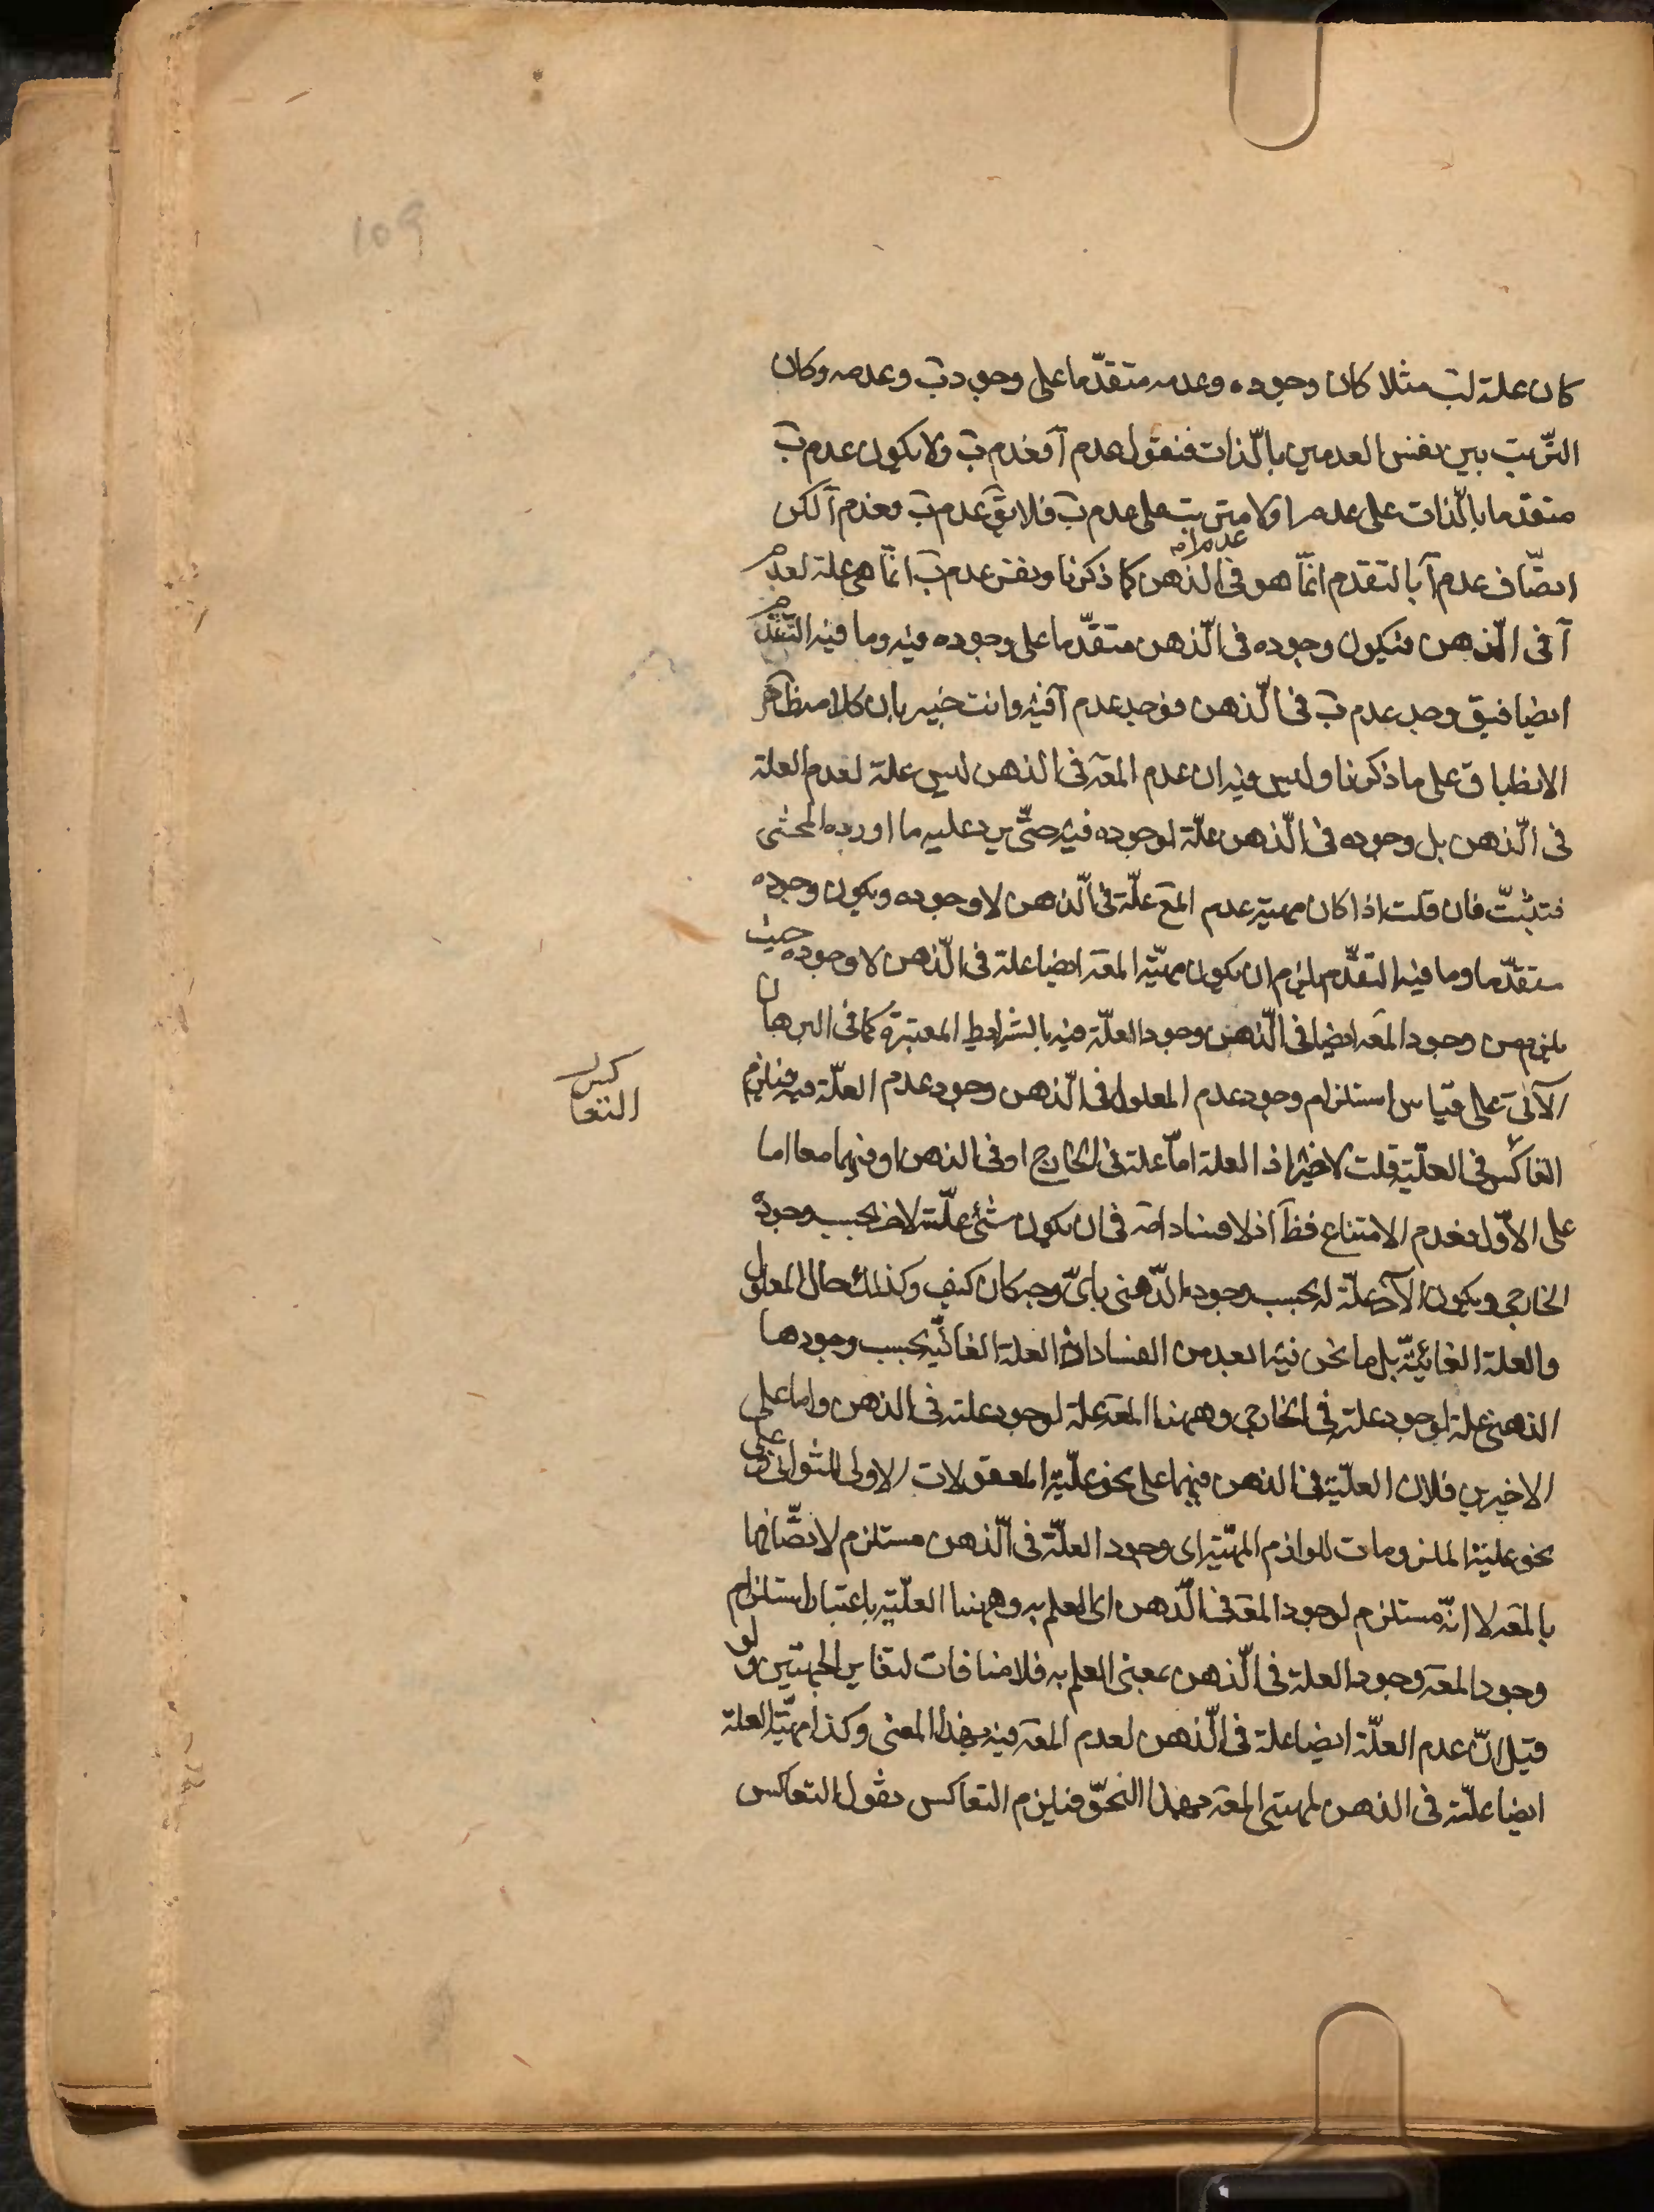 109
كان علة لب مثلا كان وجوده وعدمه متقدّما على وجود ب وعدمه وكان
الترّتب بين نفس العدمين بالّذات فنقول عدم آ فعدم ب ولا يكون عدم ب
متقدّما بالّذات على عدم ا ولا مترتب على عدم ب فلا يقَ عدم ب فعدم آ لكن
اتصّاف عدم آ بالتقدم انّما هو فى الذهن كما ذكرنا ونفس عدم ب انّما هى علة لعدم
عدم آ
آ فى الذهن فيكون وجوده فى الّذهن متقدّما على وجوده فيه وما فيه التّقدم
ايضا فيق وجد عدم ب فى الّذهن فوجد عدم آ فيه وانت خبير بان كلامه ظاهر
الانطباق على ما ذكرنا وليس فيه ان عدم المعَه فى الذهن ليس علة لعدم العلة
فى الّذهن بل وجوده فى الّذهن علّة لوجوده فيه حتّى يرد عليه ما اورده المحشى
فتثبّت فان قلت اذا كان مهية عدم المعَ علّة فى الّذهن لا وجوده ويكون وجوده
متقدّما وما فيه التقدّم يلزم ان يكون مهيّة المعَه ايضا علة فى الّذهن لا وجوده حيث
يلزم من وجود المعَه ايضا فى الّذهن وجود العلّة فيه بالشرايط المعتبرة كما فى البرهان
الآنى على قياس استلزام وجود عدم المعلول فى الّذهن وجود عدم العلّة فيه فيلزم
التعاكس فى العلّية قلت لا ضير اذ العلة امّا علة فى الخارج او فى الذهن او فيهما معا اما
كس
التعا
على الاوّل فعدم الامتناع فظَ اذ لا فساد اصَ فى ان يكون شئ علّة لاخر بحسب وجوده
الخارجى ويكون الآخر علّة له بحسب وجوده الذّهنى باىّ وجه كان كيف وكذلك حال المعلول
والعلة الغائيّة بل ما نحن فيه ابعد من الفساد اذ العلة الغائيّة بحسب وجودها
الذهنى علة لوجود علة فى الخارجى وههنا المعَه علة لوجود علته فى الذهن واما على
الاخيرين فلان العلّية فى الذهن فيهما على نحو علّية المعقولات الاولى للثوانى وعلى
نحو علية الملزومات للوازم المهيّة اى وجود العلّة فى الّذهن مستلزم لاتصّافها
بالمعَه لا انّه مستلزم لوجود المعَه فى الّذهن اى العلم به وههنا العلّية باعتبار استلزام
وجود المعَه وجود العلة فى الّذهن بمعنى العلم به فلا منافات لتغاير الجهتين ولو
قيل انّ عدم العلّة ايضا علة فى الّذهن لعدم المعَه فيه بهذا المعنى وكذا مهيّة العلة
ايضا علّة فى الذهن لمهية المعَه بهذا النحوّ فيلزم التعاكس نقول التعاكس